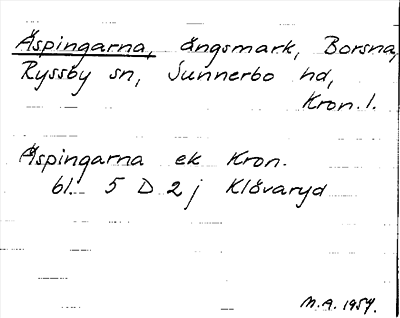 Äspingarna, ängsmark, Borsna,
Ryssby sn, Sunnerbo hd,
Kron. l.
Äspingarna ek Kron.
bl. 5 D 2 j Klövaryd
M.A. 1954.